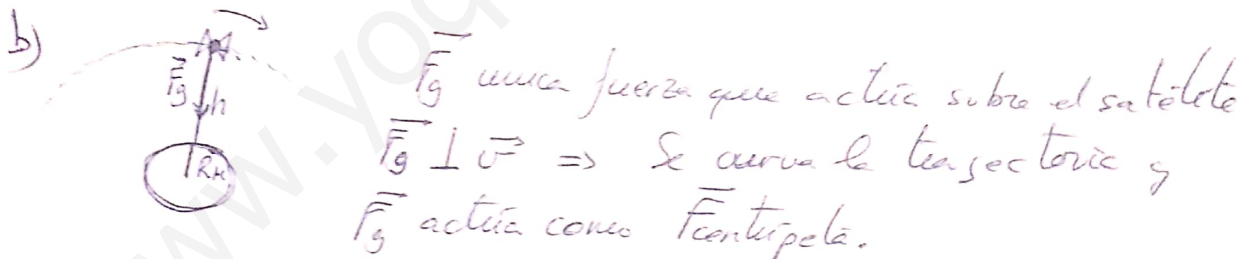 b)
F⃗g h
R_M
F⃗g única fuerza que actúa sobre el satélite
F⃗g ⊥ v⃗ => Se curva la trayectoria y
F⃗g actúa como F⃗centrípeta.
www.yoq